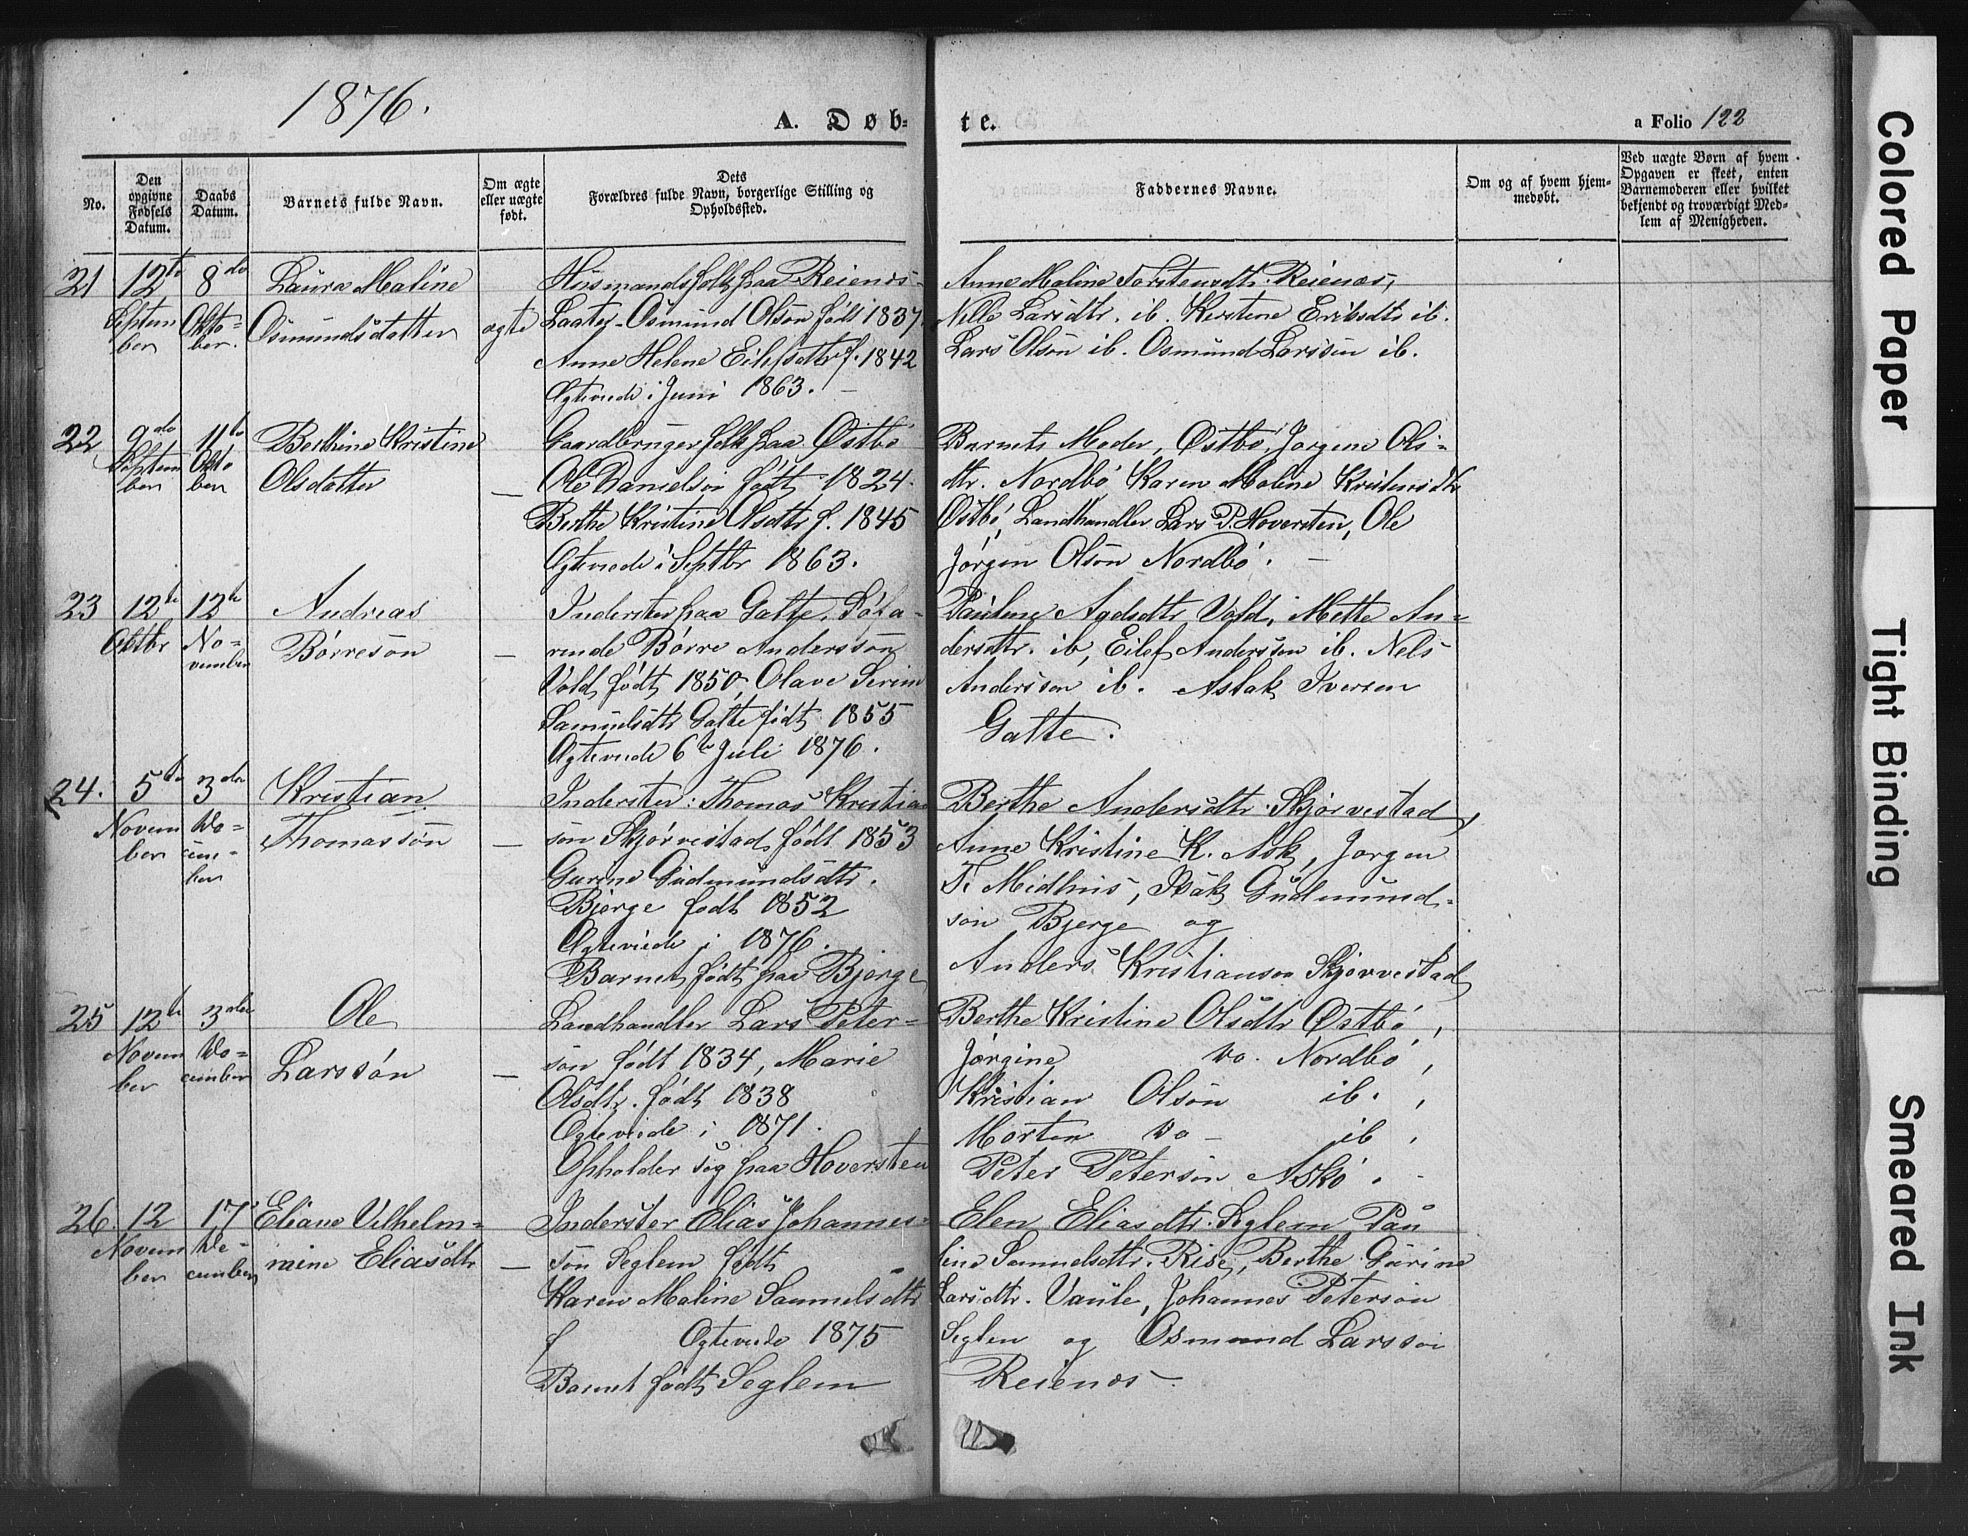 1876.
A. Døb-
te.
a Folio 122
No.
Den opgivne Fødsels Datum.
Daabs Datum.
Barnets fulde Navn.
Om ægte eller uægte født.
Dets Forældres fulde Navn, borgerlige Stilling og Opholdssted.
Faddernes Navne.
Om og af hvem hjemmedøbt.
Ved uægte Børn af hvem Opgaven er skeet, enten Barnemoderen eller hvilket bekjendt og troværdigt Medlem af Menigheden.
21
12te Septem
ber
8de Okto-
ber.
Laura Maline
Osmundsdatter
ægte
Husmandsfolk paa Reienæs-
Osmund Olsøn født 1837
Anne Helene Eilefsdtr f. 1842
Ægteviede i Juni 1863. –
Anne Maline Torstensdtr. Reienæs,
Nelle Larsdtr. ib. Kirstine Eriksdtr ib.
Lars Olsøn ib. Osmund Larssøn ib.
22
9de
Septem
ber
11te
Okto
ber
Berthine Kristine
Olsdatter
—
Gaardbrugerfolk paa Østbø
Ole Danielsøn født 1824.
Berthe Kristine Olsdtr f. 1845
Ægteviede i Septbr 1863.
Barnets Moder, Østbø, Jorgine Ols-
dtr. Nordbø Karen Maline Kristensdtr
Østbø, Landhandler Lars P. Hoversten, Ole
Jørgen Olsøn Nordbø. –
23
12te
Oktbr
12te
No-
vember
Andreas
Børresøn
—
Inderster paa Gatte, Søfa-
rende Børre Anderssøn
Vold født 1850, Olave Serine
Samuelsdtr Gatte født 1855
Ægteviede 6te Juli 1876.
Pauline Vold, Mette An-
dersdtr. ib, Eilef Anderssøn ib. Nels
Anderssøn ib. Aslak Iversen
Gatte.
24.
5te
Novem
ber
3die
De-
cem-
ber
Kristian
Thomassøn
—
Inderster: Thomas Kristian
søn Skjørvestad født 1853
Gurine Gudmundsdtr.
Bjerge født 1852
Ægteviede i 1876.
Barnet født paa Bjerge
Berthe Andersdtr. Skjørvestad,
Anne Kristine K. Ask, Jørgen
T. Midhus, Gudmund-
søn Bjerge og
Anders Kristiansøn Skjørvestad
25
12te
Novem
ber
3die
De-
cember
Ole
Larssøn
—
Landhandler Lars Peter-
søn født 1834, Marie
Olsdtr. født 1838
Ægteviede i 1871.
Opholder sig paa Hoversten
Berthe Kristine Olsdtr Østbø,
Jørgine Do. Nordbø,
Kristian Olsøn ib. ,
Morten Do – ib ,
Peter Petersøn Askø. -
26.
12
Novem
ber
17
De-
cember
Eliave Vilhelm-
mine Eliasdtr
—
Inderster Elias Johannes-
søn Seglem født
Karen Maline Samuelsdtr
f Ægteviede 1875
Barnet født Seglem
Elen Eliasdtr. Seglem Pau
line Samuelsdtr. Rise, Berthe Gurine
Larsdtr. Vaule, Johannes Petersøn
Seglem og Osmund Larssøn
Reienæs –
Colored Paper
Tight Binding
Smeared Ink